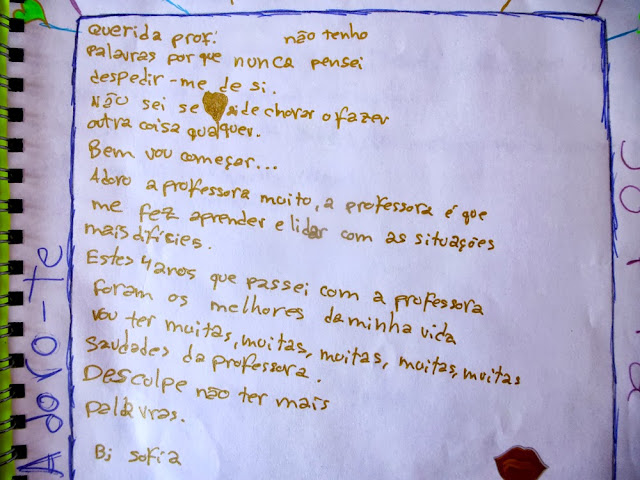 Querida prof: não tenho
palavras por que nunca pensei
despedir-me de si.
Não sei se ide chorar o fazer
outra coisa qualquer.
Bem vou começar...
Adoro a professora muito, a professora é que
me fez aprender e lidar com as situações
mais difícies.
Estes 4 anos que passei com a professora
foram os melhores da minha vida
vou ter muitas, muitas, muitas, muitas, muitas
saudades da professora.
Desculpe não ter mais
palavras.
Bj sofia
Adoro-te